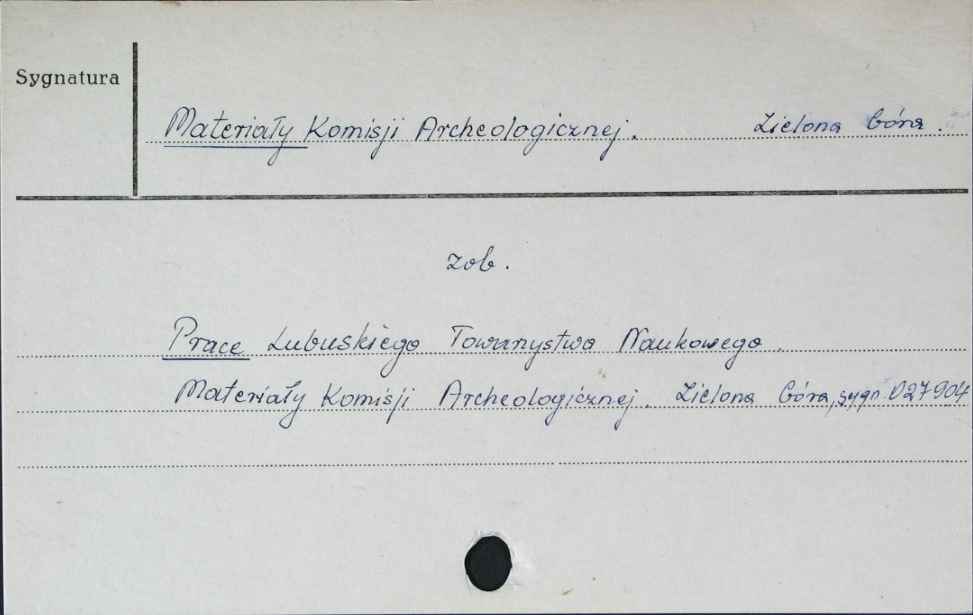 Sygnatura
Materiały Komisji Archeologicznej. Zielona Góra.
zob.
Prace Lubuskiego Towarzystwa Naukowego.
Materiały Komisji Archeologicznej. Zielona Góra, sygn. D27904